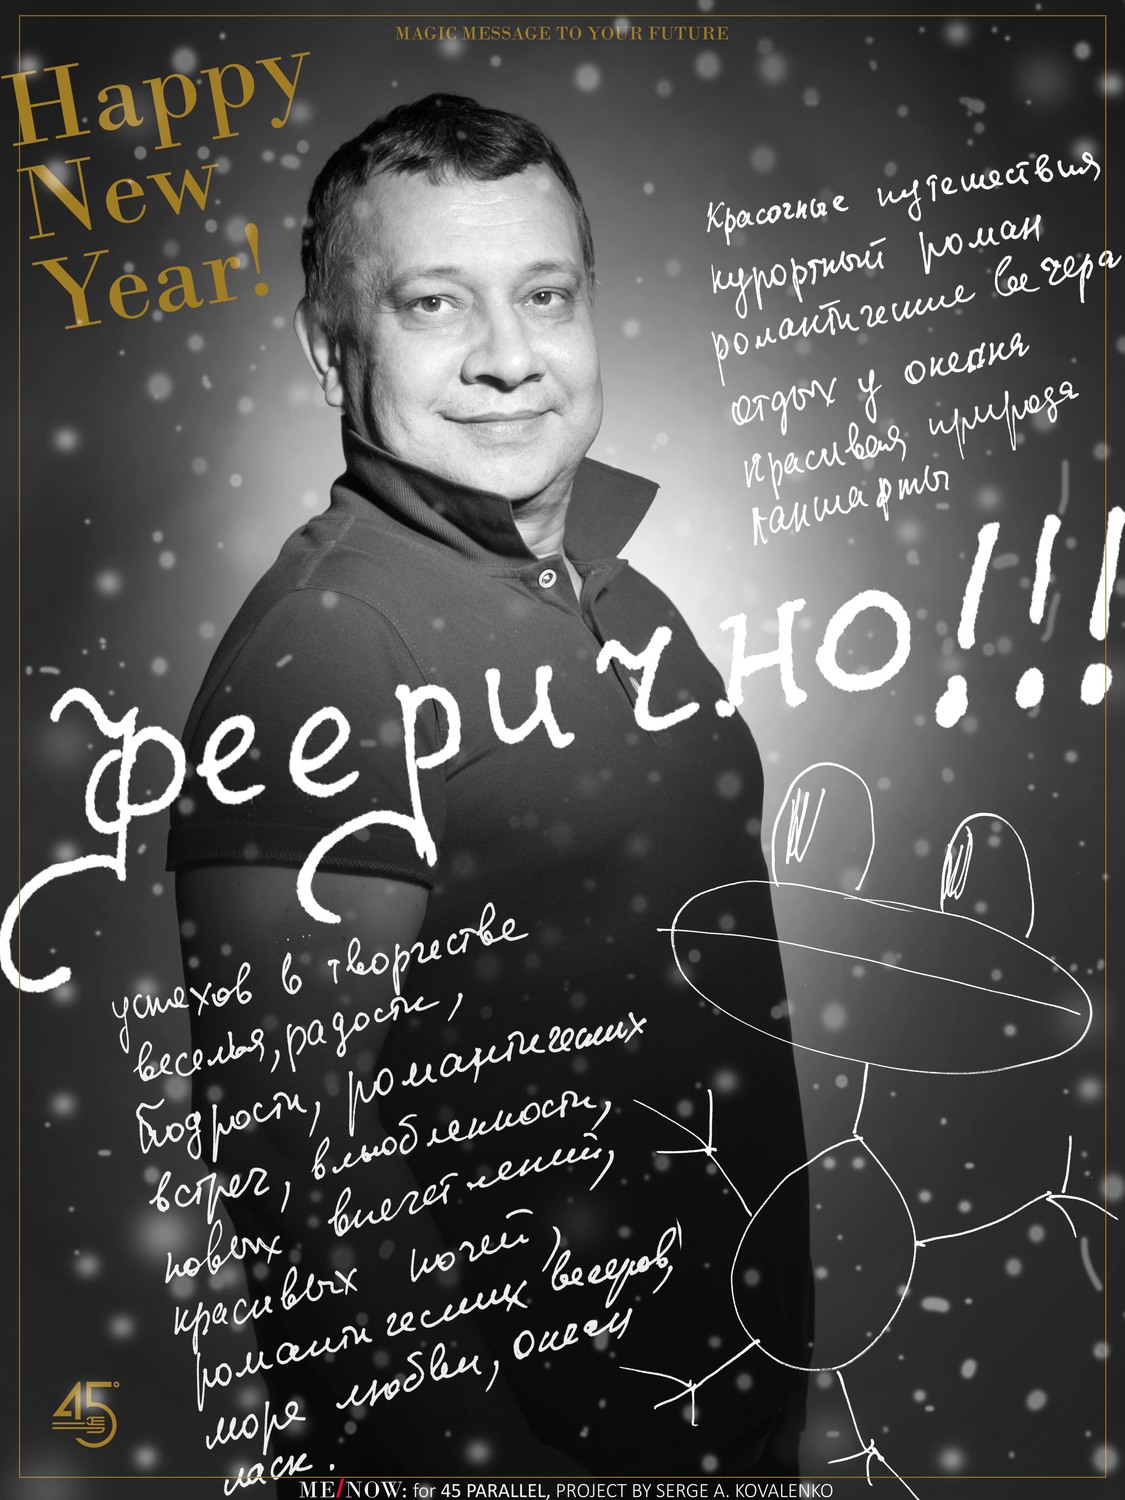 MAGIC MESSAGE TO YOUR FUTURE
Happy
New
Year!
Красочные путешествия
курортный роман
романтичешие вечера
отдых у океана
красивая природа
ланшафты
феерично!!!
успехов в творчестве
веселья, радости,
бодрости, романтических
встреч, влюбленности,
новых впечетлений,
красивых ночей,
романтических вечеров,
море любви, океан
ласк.
45°
ME/NOW: for 45 PARALLEL, PROJECT BY SERGE A. KOVALENKO